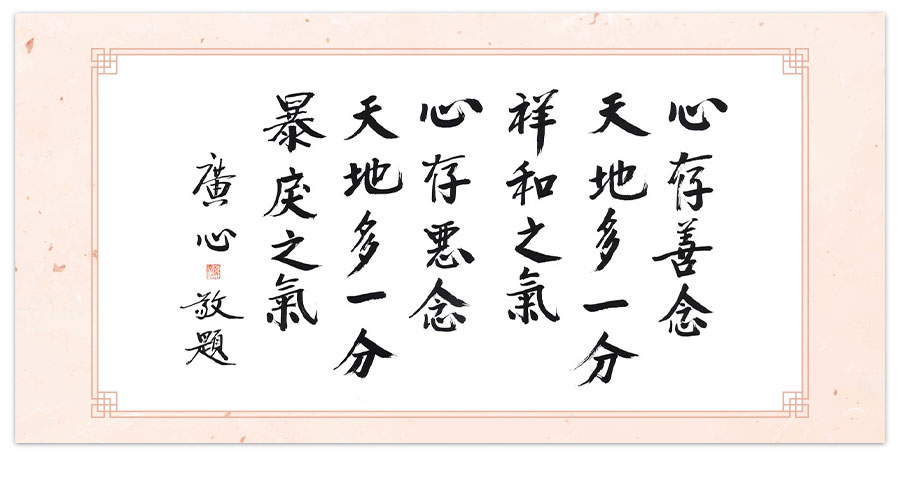 心存善念
天地多一分
祥和之氣
心存惡念
天地多一分
暴戾之氣
廣心敬題